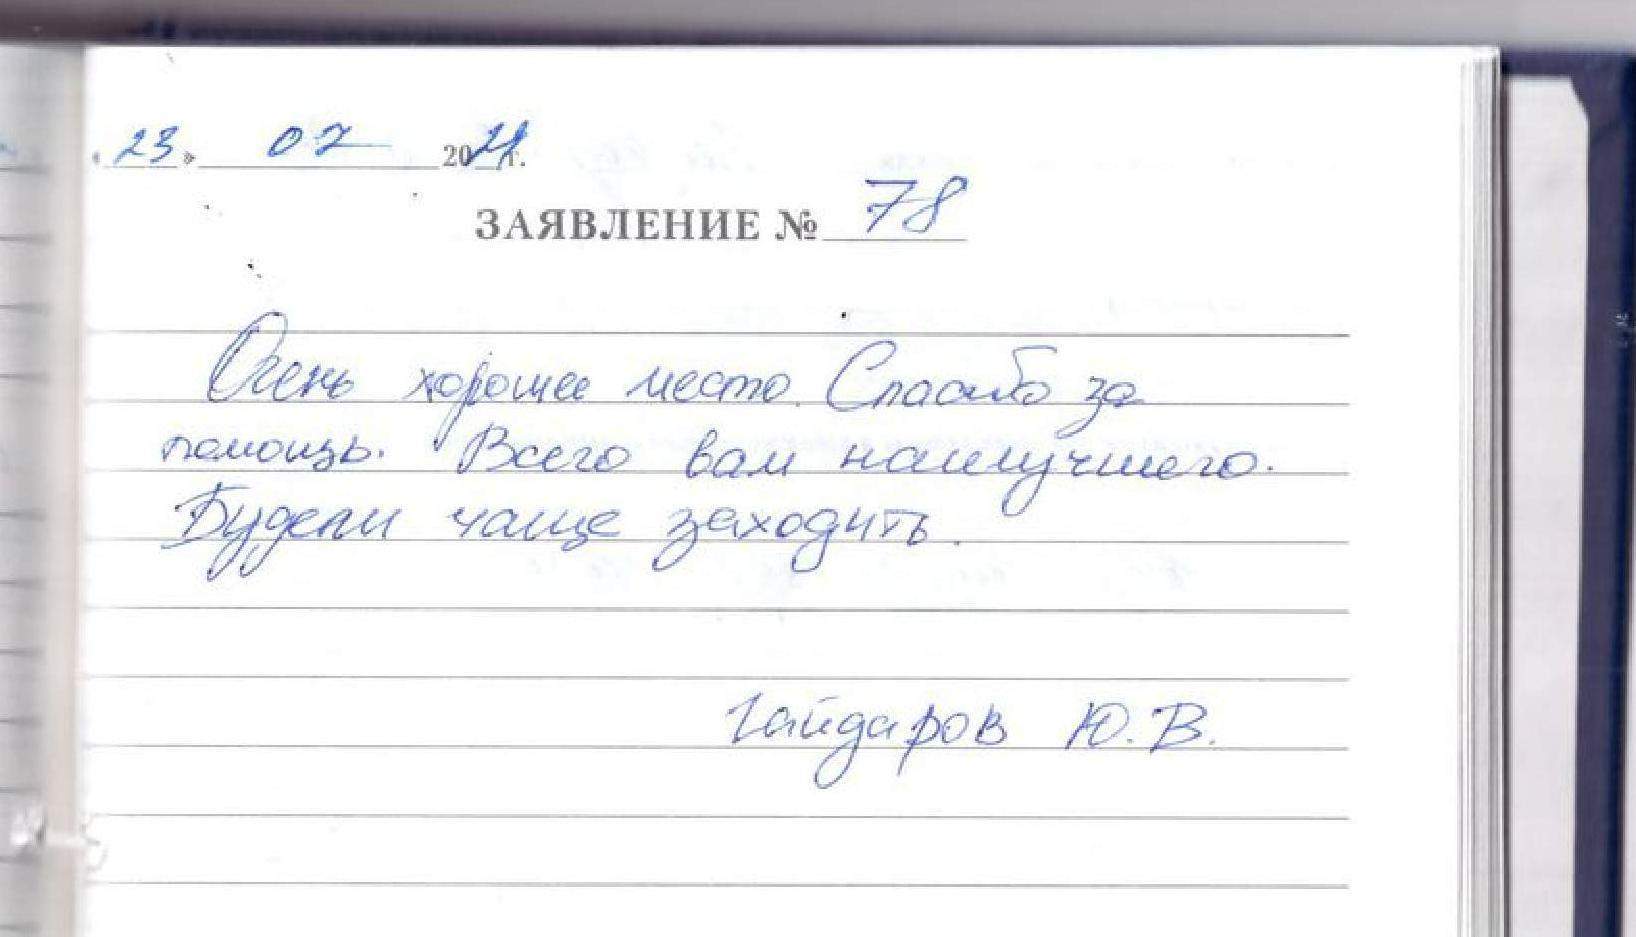 «23» 07 2021 г.
ЗАЯВЛЕНИЕ № 78
Очень хорошее место. Спасибо за
помощь. Всего вам наилучшего.
Будем чаще заходить.
Гайдаров Ю.В.